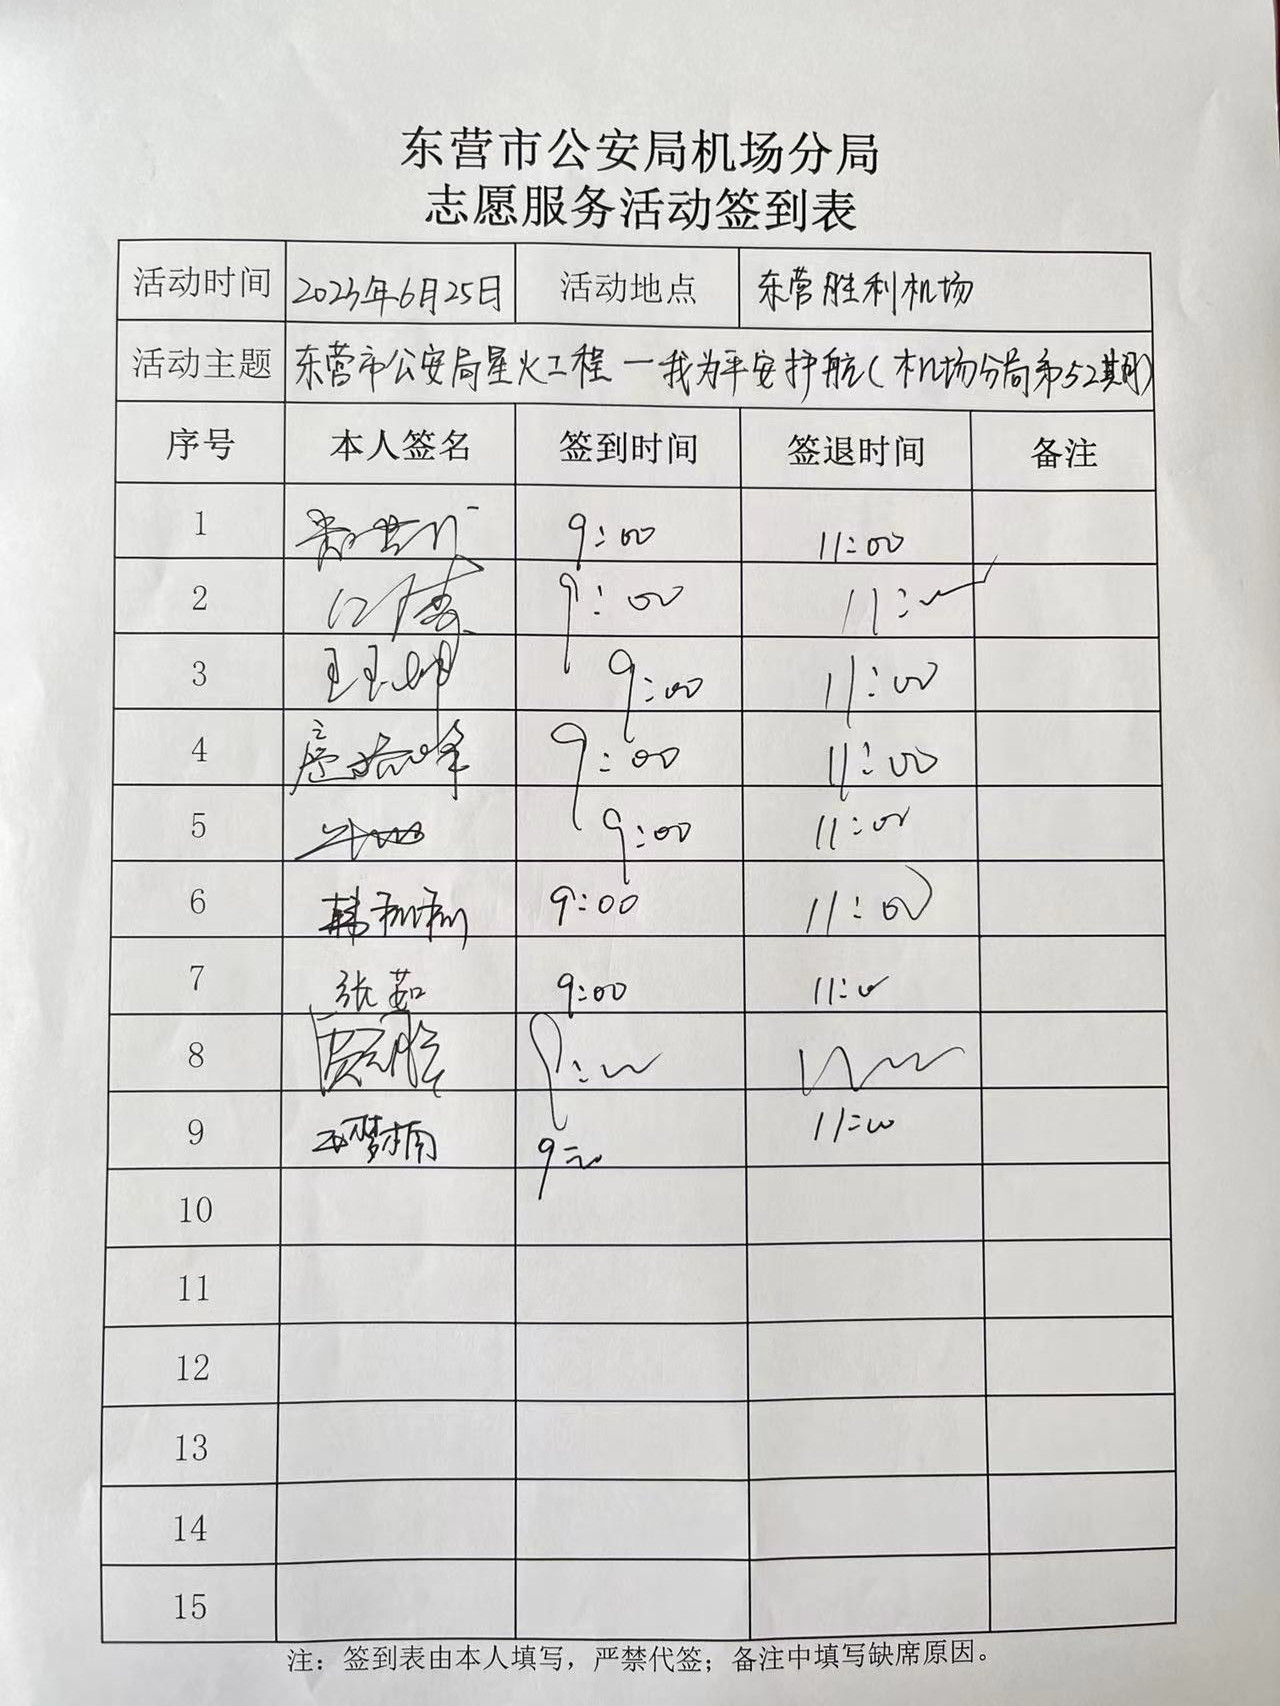 东营市公安局机场分局
志愿服务活动签到表
活动时间 2023年6月25日 活动地点 东营胜利机场
活动主题 东营市公安局星火工程—我为平安护航(机场分局第52期)
序号 本人签名 签到时间 签退时间 备注
1 9:00 11:00
2 9:00 11:00
3 9:00 11:00
4 9:00 11:00
5 9:00 11:00
6 韩 9:00 11:00
7 张茹 9:00 11:00
8
9 梦楠 9:00 11:00
10
11
12
13
14
15
注：签到表由本人填写，严禁代签；备注中填写缺席原因。